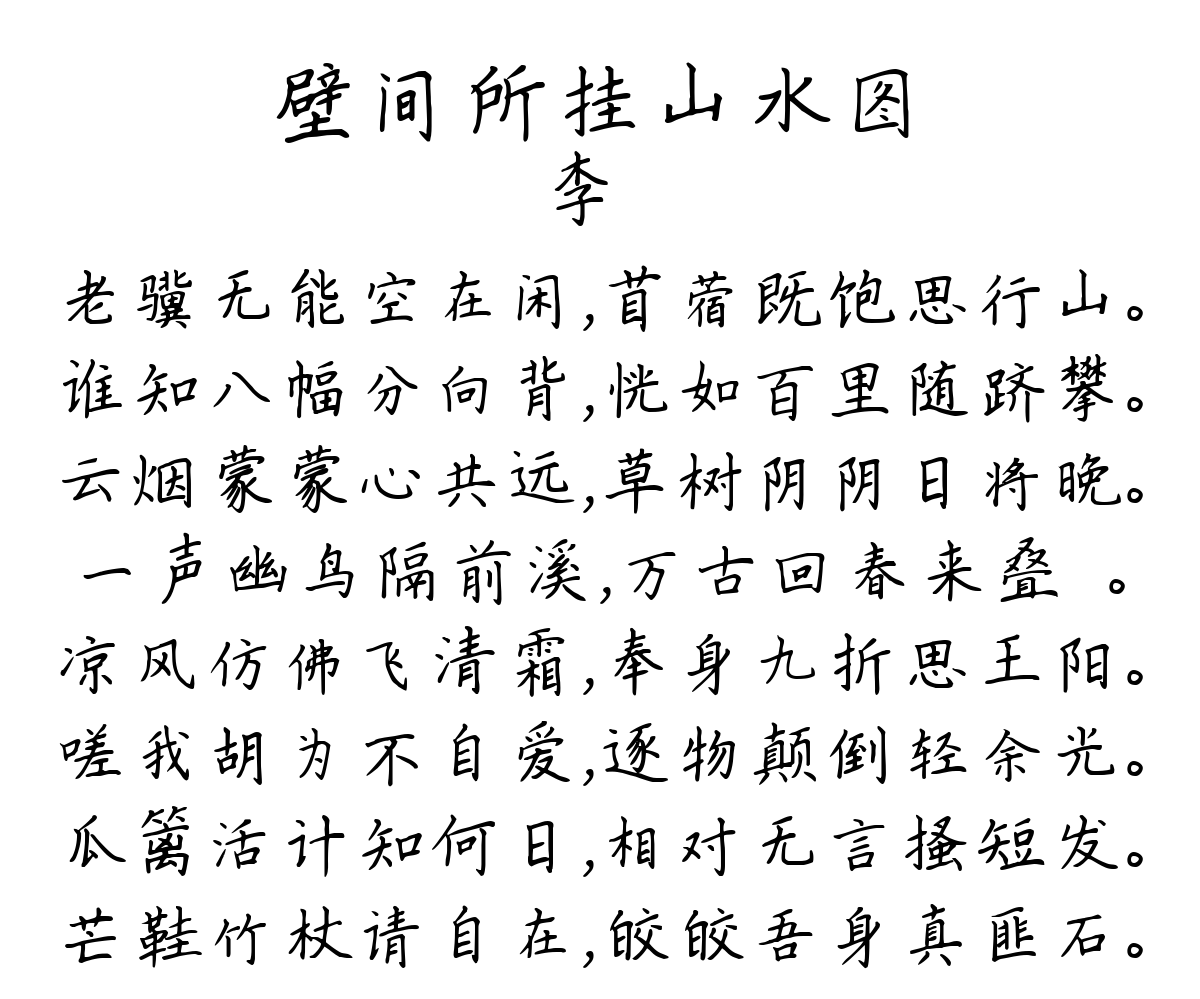 壁间所挂山水图
李
老骥无能空在闲,苜蓿既饱思行山。
谁知八幅分向背,恍如百里随跻攀。
云烟蒙蒙心共远,草树阴阴日将晚。
一声幽鸟隔前溪,万古回春来叠 。
凉风仿佛飞清霜,奉身九折思王阳。
嗟我胡为不自爱,逐物颠倒轻余光。
瓜篱活计知何日,相对无言搔短发。
芒鞋竹杖请自在,皎皎吾身真匪石。